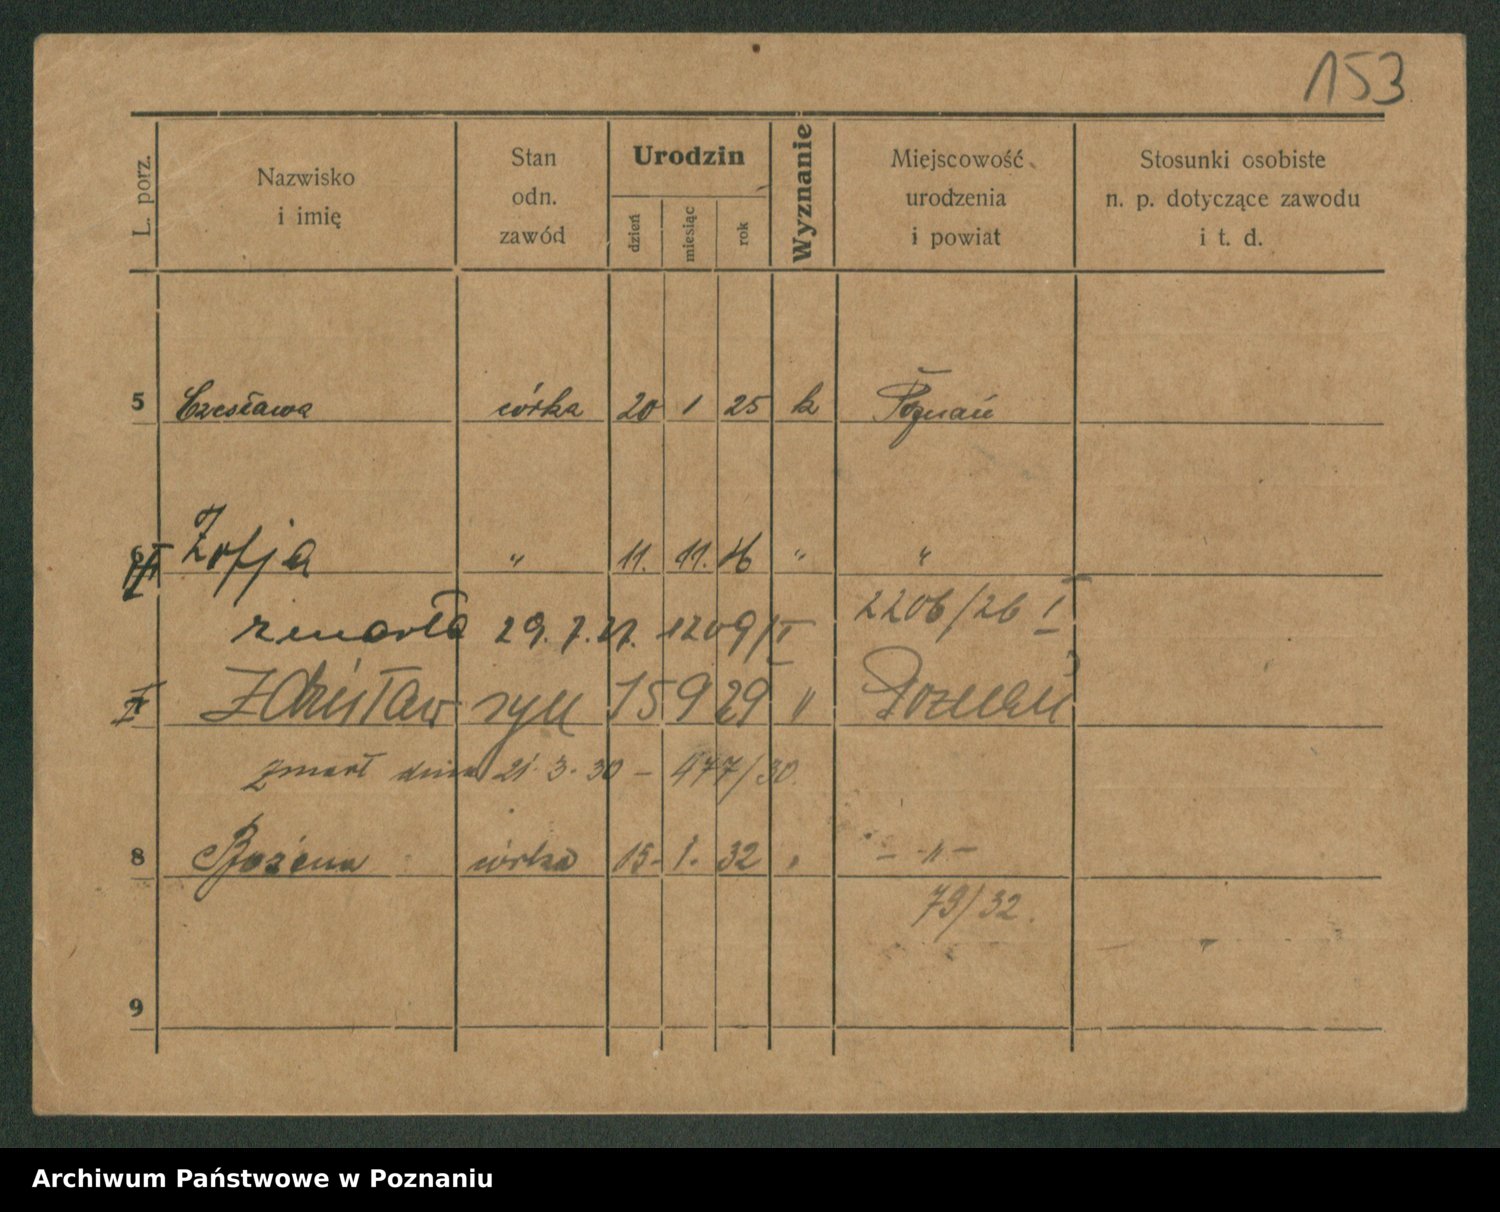 153
L. porz.
Nazwisko i imię
Stan odn. zawód
Urodzin
dzień miesiąc rok
Wyznanie
Miejscowość urodzenia i powiat
Stosunki osobiste n. p. dotyczące zawodu i t. d.
5 Czesława córka 20 1 25 k Poznań
Zofja " 11. 11. 26 " "
2206/26 I
zmarła 29. 7. 27. 1209/II
Zdzisław syn 15 9 29 " Poznań
zmarł dnia 21. 3. 30 – 477/30.
8 Bożena córka 15. 1. 32 " – " –
79/32.
9
Archiwum Państwowe w Poznaniu